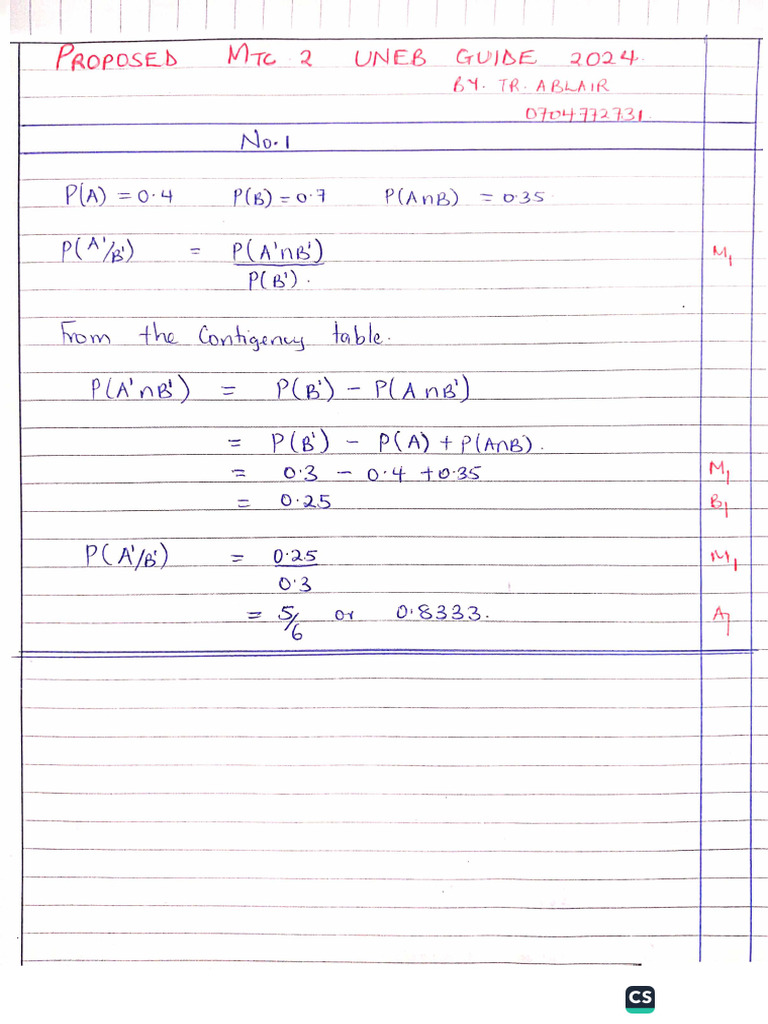 PROPOSED MTC 2 UNEB GUIDE 2024.
BY. TR. ABLAIR
0704772731.
No.1
P(A) = 0.4 P(B) = 0.7 P(A∩B) = 0.35
P(A'/B') = P(A'∩B') M1
P(B').
From the Contigency table.
P(A'∩B') = P(B') - P(A∩B')
= P(B') - P(A) + P(A∩B).
= 0.3 - 0.4 + 0.35 M1
= 0.25 B1
P(A'/B') = 0.25 M1
0.3
= 5/6 or 0.8333. A1
CS